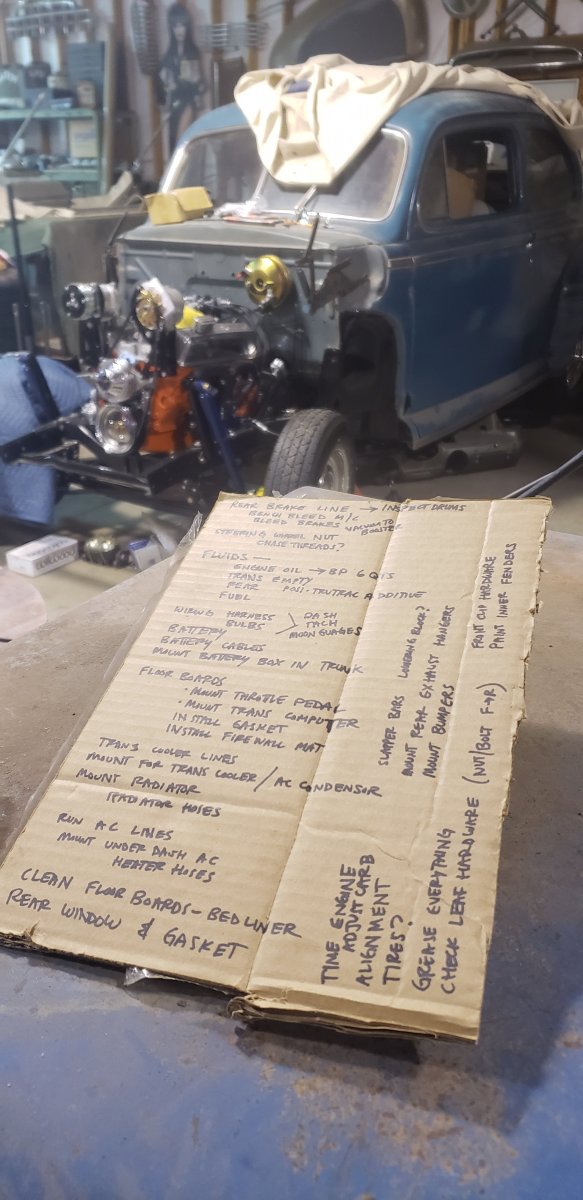 REAR BRAKE LINE → INSPECT DRUMS
BENCH BLEED M/C
BLEED BRAKES VACUUM TO BOOSTER
STEERING WHEEL NUT
CHASE THREADS?
FLUIDS —
ENGINE OIL → BP 6 QTS
TRANS EMPTY
REAR POSI-TRUTRAC ADDITIVE
FUEL
WIRING HARNESS > DASH
BULBS TACH
BATTERY MOON GUAGES
BATTERY CABLES
MOUNT BATTERY BOX IN TRUNK
FLOOR BOARDS
• MOUNT THROTTLE PEDAL
• MOUNT TRANS COMPUTER
INSTALL GASKET
INSTALL FIREWALL MAT
TRANS COOLER LINES
MOUNT FOR TRANS COOLER / AC CONDENSOR
MOUNT RADIATOR
RADIATOR HOSES
RUN AC LINES
MOUNT UNDER DASH AC
HEATER HOSES
CLEAN FLOOR BOARDS - BEDLINER
REAR WINDOW & GASKET
TIME ENGINE
ADJUST CARB
ALIGNMENT
TIRES?
SLAPPER BARS LOWERING BLOCK?
MOUNT REAR EXHAUST HANGERS
MOUNT BUMPERS
GREASE EVERYTHING
CHECK LEAF HARDWARE (NUT/BOLT F→R)
FRONT CLIP HARDWARE
PAINT INNER FENDERS